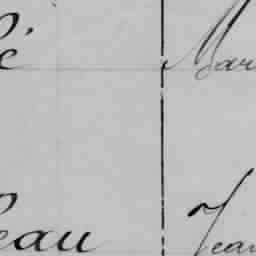 é Mar
eau Jean